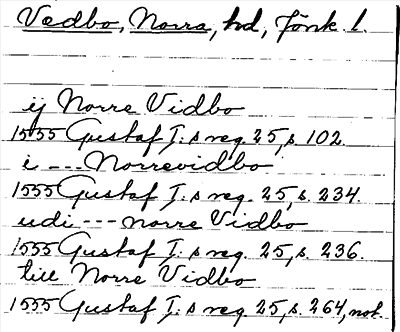 Vedbo, Norra, hd, Jönk. l.
ij Norre Vidbo
1555 Gustaf I:s reg. 25, s. 102.
i --- Norrevidbo
1555 Gustaf I:s reg. 25, s. 234.
udi --- norre Vidbo
1555 Gustaf I:s reg. 25, s. 236.
till Norre Vidbo
1555 Gustaf I:s reg. 25, s. 264, not.